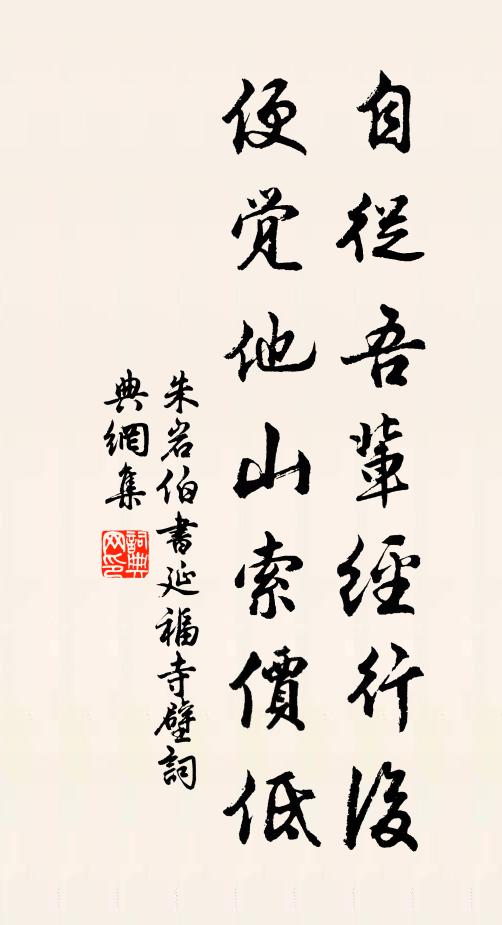 自從吾輩經行後
便覺他山索價低
朱岩伯書延福寺壁詞
典網集
詞典网印